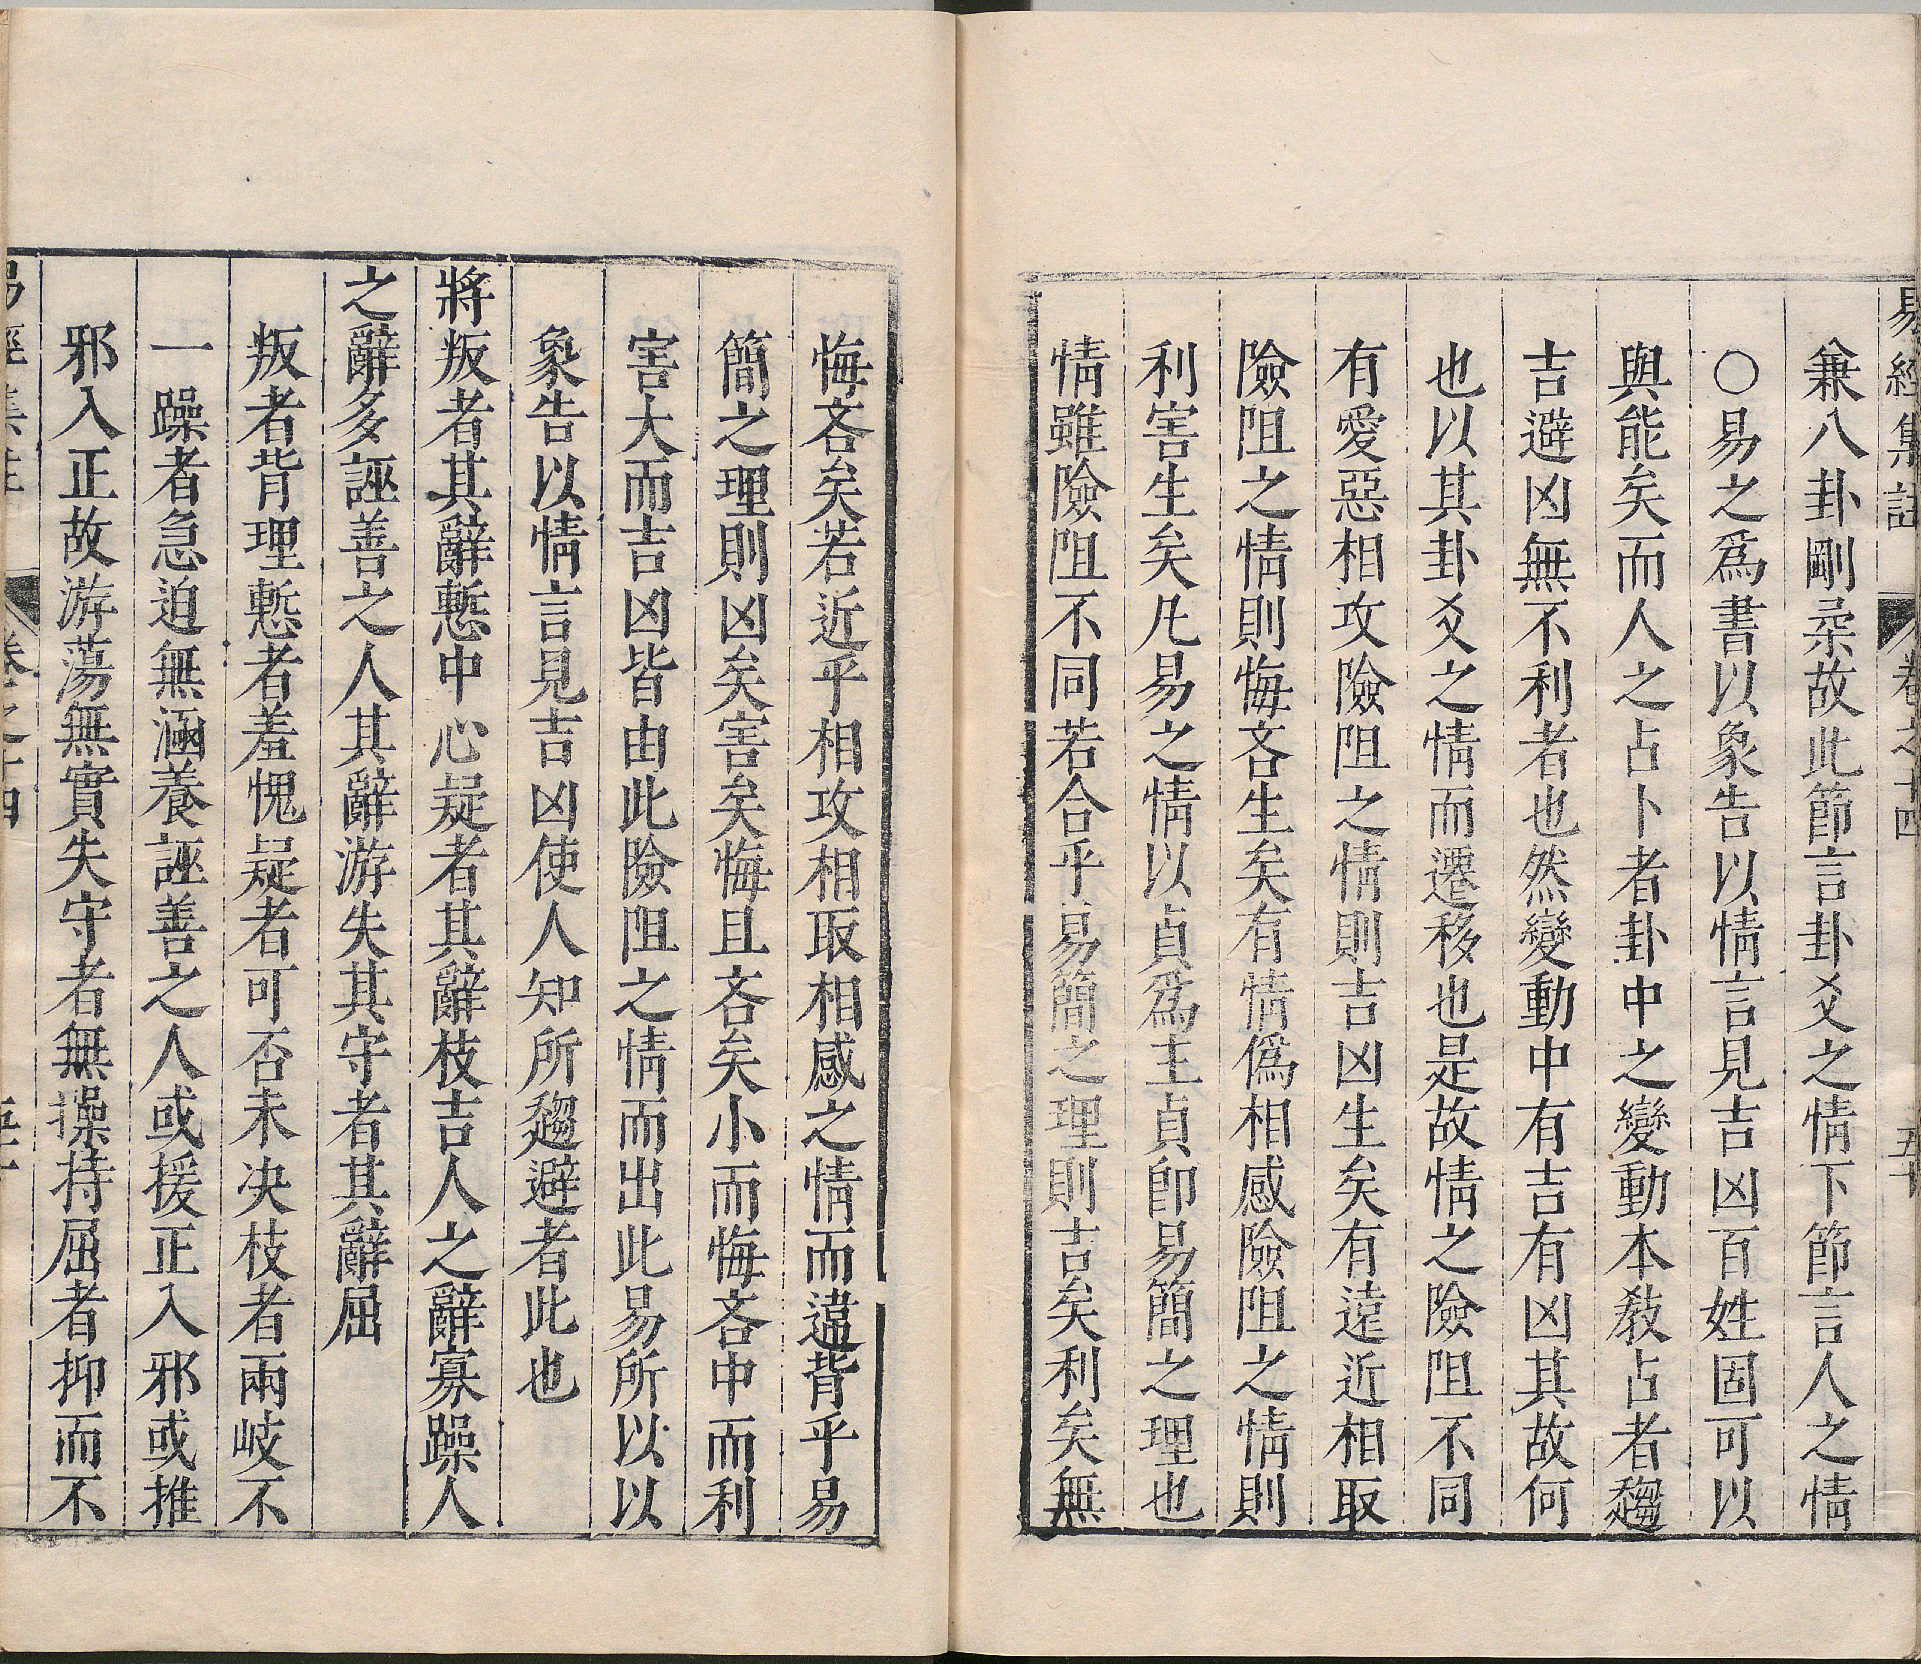 易經集註 卷之十四 五十
兼八卦剛柔故此節言卦爻之情下節言人之情
○易之爲書以象告以情言見吉凶百姓固可以
與能矣而人之占卜者卦中之變動本教占者趨
吉避凶無不利者也然變動中有吉有凶其故何
也以其卦爻之情而遷移也是故情之險阻不同
有愛惡相攻險阻之情則吉凶生矣有遠近相取
險阻之情則悔吝生矣有情偽相感險阻之情則
利害生矣凡易之情以貞爲主貞卽易簡之理也
情雖險阻不同若合乎易簡之理則吉矣利矣無
悔吝矣若近乎相攻相取相感之情而違背乎易
簡之理則凶矣害矣悔且吝矣小而悔吝中而利
害大而吉凶皆由此險阻之情而出此易所以以
象告以情言見吉凶使人知所趨避者此也
將叛者其辭慙中心疑者其辭枝吉人之辭寡躁人
之辭多誣善之人其辭游失其守者其辭屈
叛者背理慙者羞愧疑者可否未决枝者兩岐不
一躁者急迫無涵養誣善之人或援正入邪或推
邪入正故游蕩無實失守者無操持屈者抑而不
易經集註 卷之十四